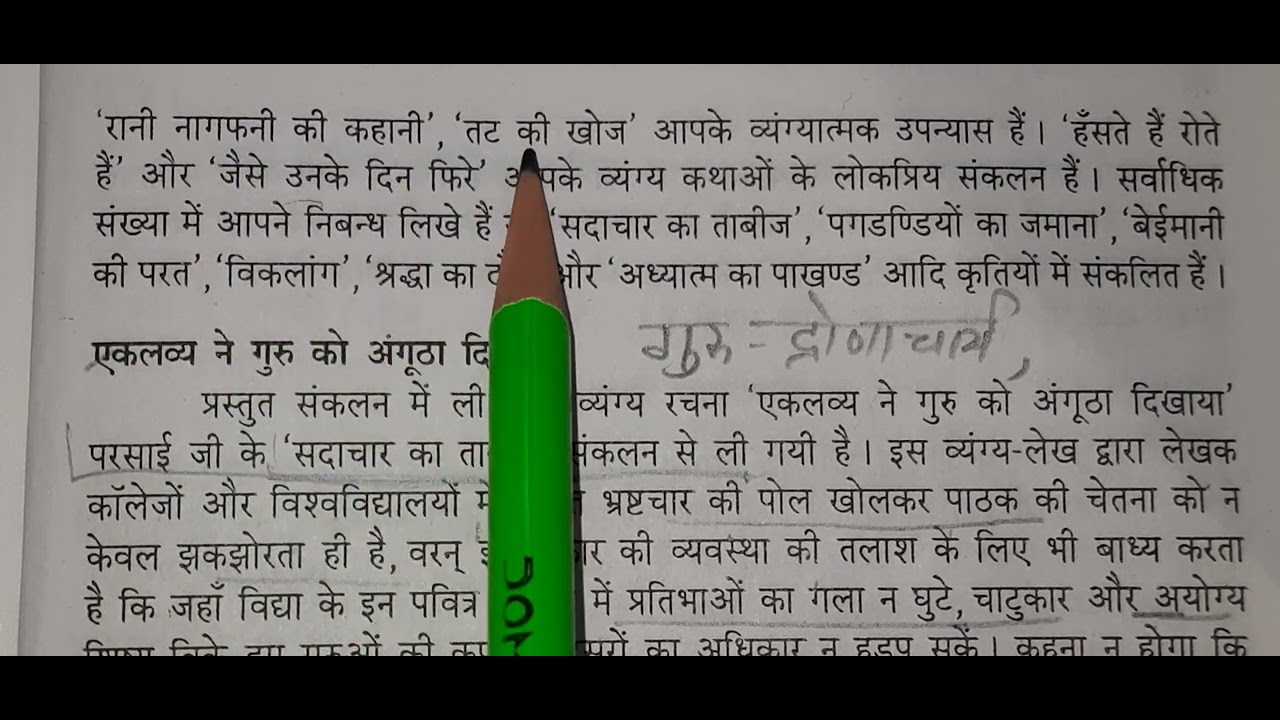 ‘रानी नागफनी की कहानी’, ‘तट की खोज’ आपके व्यंग्यात्मक उपन्यास हैं। ‘हँसते हैं रोते
हैं’ और ‘जैसे उनके दिन फिरे’ आपके व्यंग्य कथाओं के लोकप्रिय संकलन हैं। सर्वाधिक
संख्या में आपने निबन्ध लिखे हैं ‘सदाचार का ताबीज’, ‘पगडण्डियों का जमाना’, ‘बेईमानी
की परत’, ‘विकलांग’, ‘श्रद्धा का और ‘अध्यात्म का पाखण्ड’ आदि कृतियों में संकलित हैं।
एकलव्य ने गुरु को अंगूठा गुरु = द्रोणाचार्य,
प्रस्तुत संकलन में ली व्यंग्य रचना ‘एकलव्य ने गुरु को अंगूठा दिखाया’
परसाई जी के ‘सदाचार का संकलन से ली गयी है। इस व्यंग्य-लेख द्वारा लेखक
कॉलेजों और विश्वविद्यालयों भ्रष्टचार की पोल खोलकर पाठक की चेतना को न
केवल झकझोरता ही है, वरन् की व्यवस्था की तलाश के लिए भी बाध्य करता
है कि जहाँ विद्या के इन पवित्र में प्रतिभाओं का गला न घुटे, चाटुकार और अयोग्य
गुरुओं की का अधिकार न हड़प सकें। कहना न होगा कि
HOC